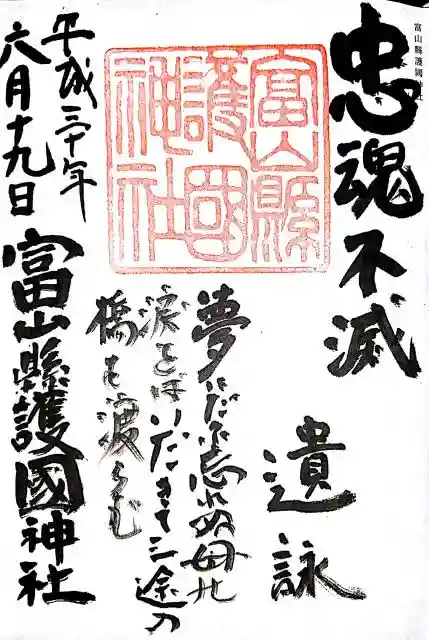 富山縣護國神社
忠魂不滅
富山縣
護國
神社
遺詠
夢にだに忘れぬ母の
涙をばいだきて三途の
橋を渡らむ
平成三十年
六月十九日
富山縣護國神社